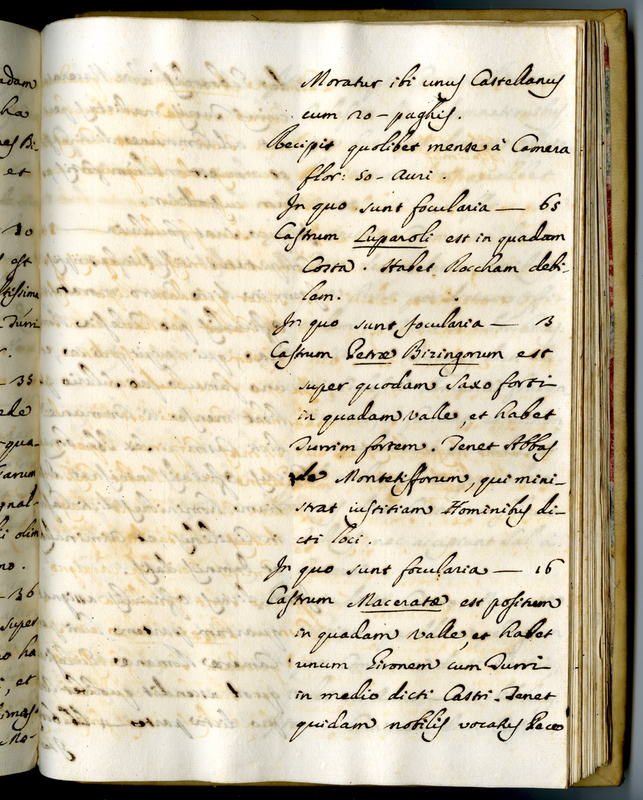 adam
ha
nes Bi-
et
30
est
ltissima
Turri
35
ede
qua-
gnal-
i olim
no.
36
super
o ha
, et
simas.
Moratur ibi unus Castellanus
cum 20 - paghis.
Recipit quolibet mense à Camera
flor: 50 - auri.
In quo sunt focularia — 65
Castrum Luparoli est in quadam
Costa. Habet Roccham debi-
lem.
In quo sunt focularia — 13
Castrum Petræ Biringorum est
super quodam saxo forti
in quadam valle, et habet
Turrim fortem. Tenet Abbas
de Montetifforum, qui mini-
strat iustitiam Hominibus di-
cti loci.
In quo sunt focularia — 16
Castrum Maceratæ est positum
in quadam valle, et habet
unum Gironem cum Turri
in medio dicti Castri. Tenet
quidam nobilis vocatus